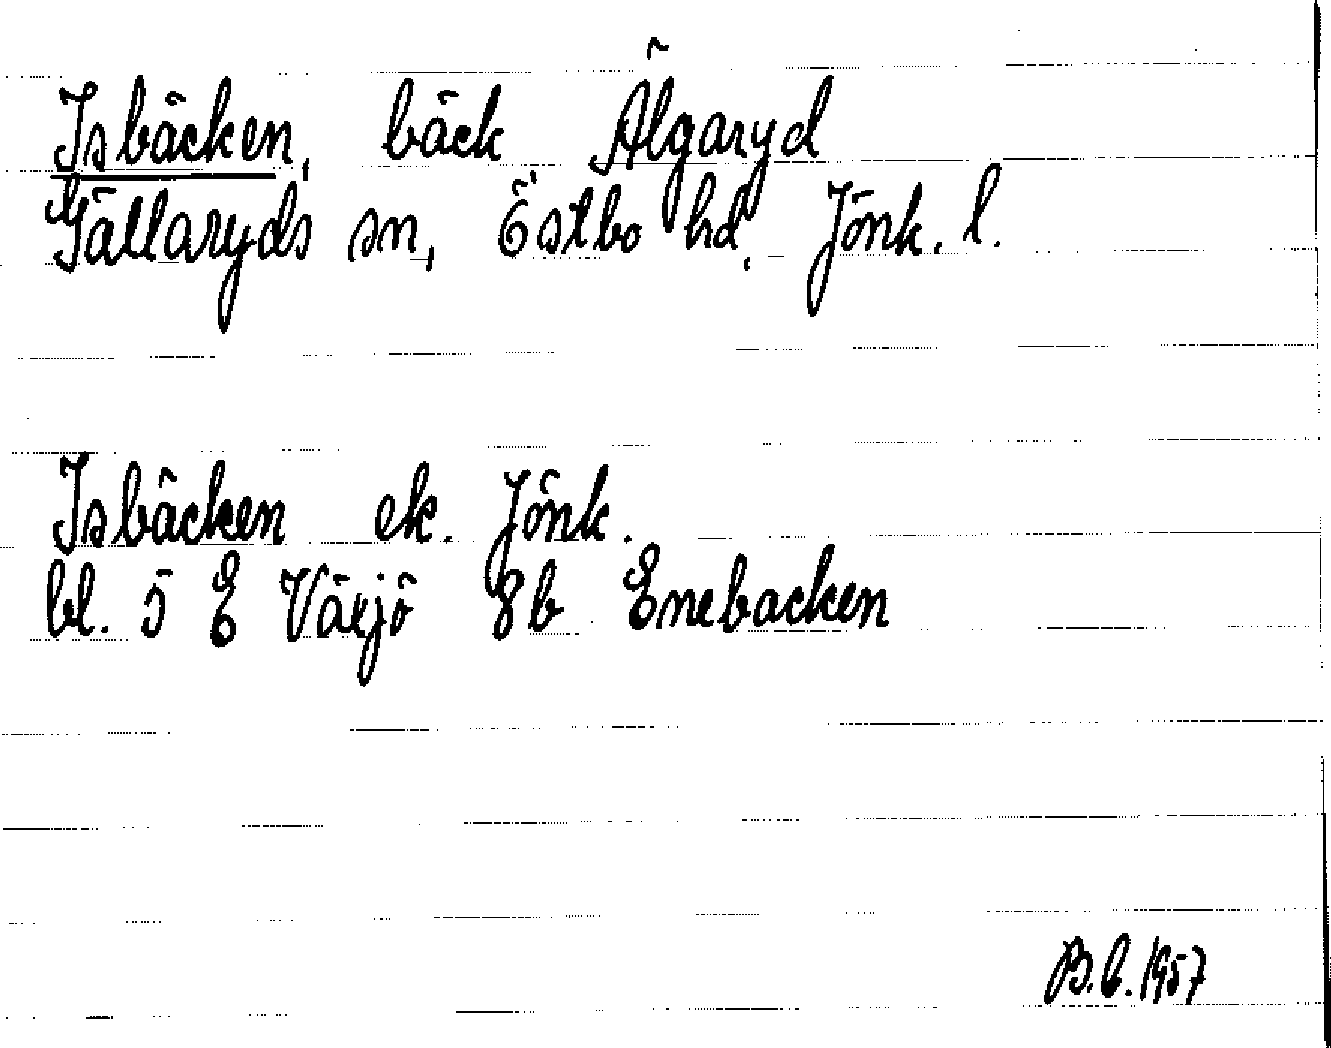 Isbäcken, bäck Älgaryd
Gällaryds sn, Östbo hd, Jönk. l.
Isbäcken ek. Jönk.
bl. 5 E Växjö 8b Enebacken
B.C. 1957